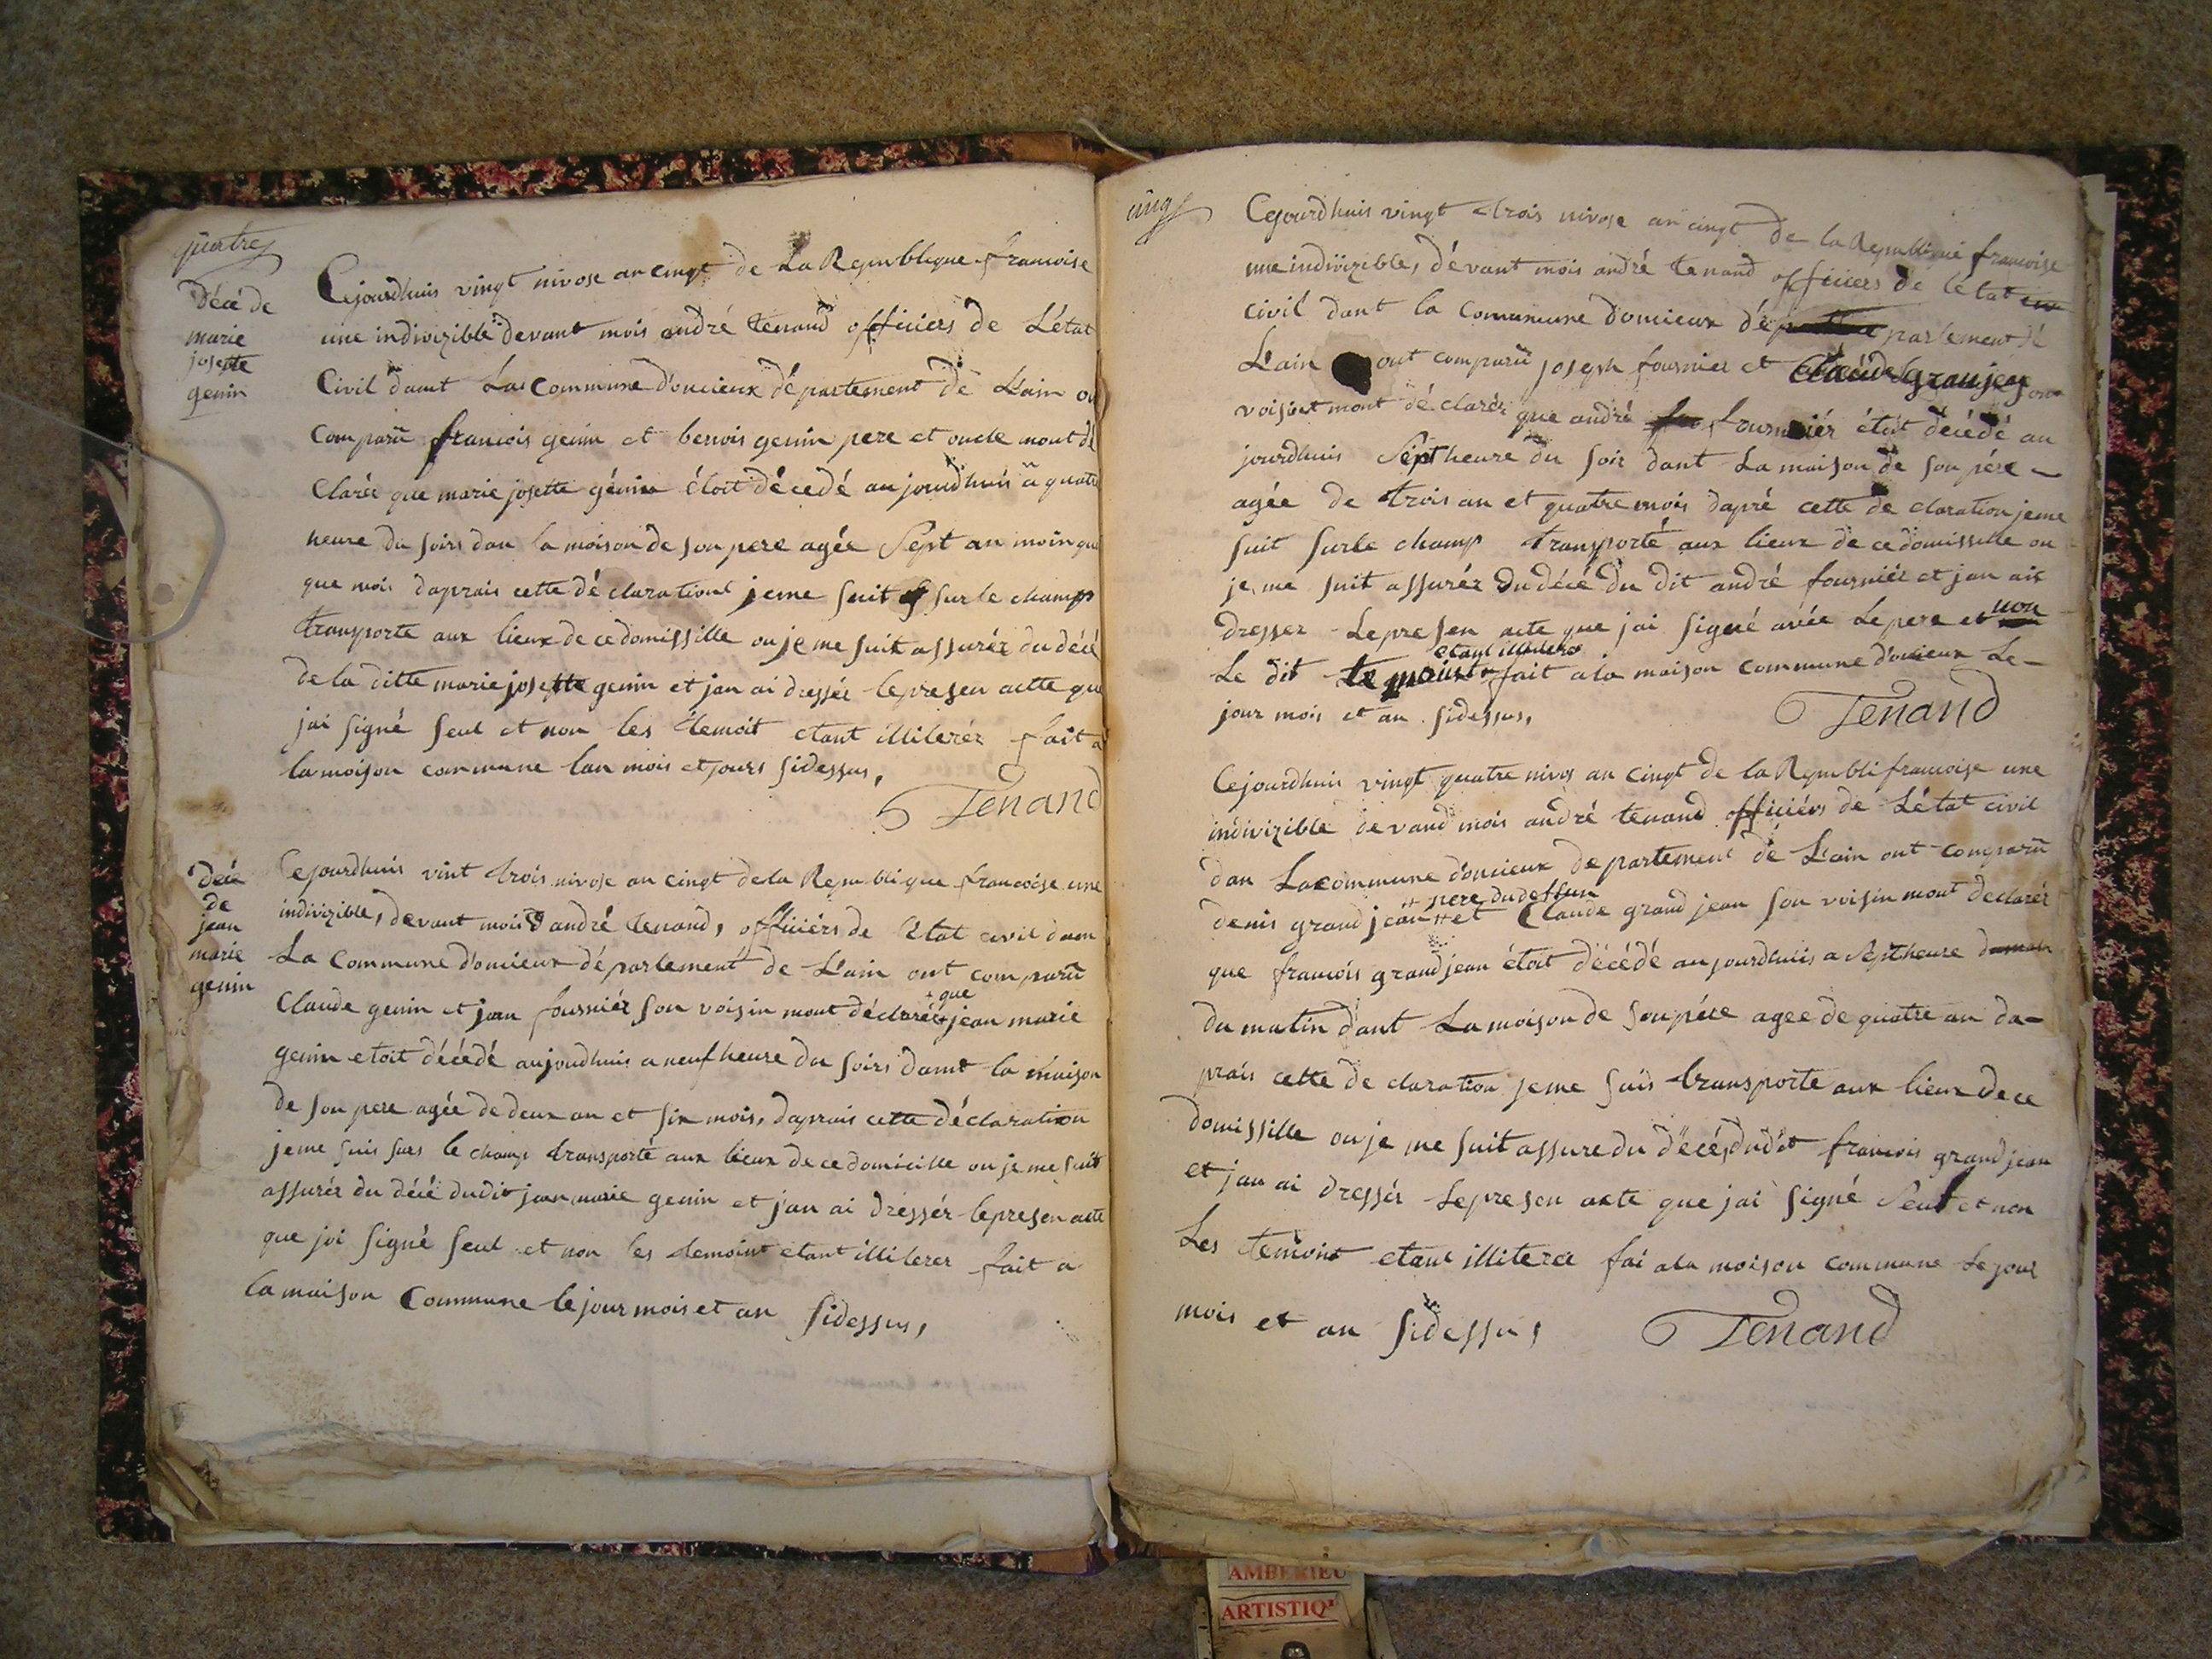 quatre
Décé de
marie
josette
genin
Cejourdhuis vingt nivose an cingt de La Republique francoise
une indivizible devant mois andré tenand officiers de L'état
Civil dant La commune d'oncieux département de L'ain on
comparu francois genin et benois genin pere et oncle mont dé
Clarér que marie josette génin étoit décedé aujourdhuis a quatre
heure du soirs dan la moison de son pere agée Sept an moin que
que mois daprais cette déclaration jeme suit sur le champs
transporte aux lieux de ce domissille ou je me suit assurér du décé
de la ditte marie josette genin et jan ai dressér le presen actte que
jai signé seul et non les temoit etant illiterér fait a
la moison commune lan mois et jours sidessus,
Tenand
décé
de
jean
marie
genin
Cejourdhuis vint trois nivose an cingt de la Republique francoise une
indivizible, devant mois andré tenand, officiérs de l'état civil dam
La commune d'oncieux département de L'ain ont comparu
+ que
Claude genin et jean fourniér son voisin mont déclarér + jean marie
genin etoit décédé aujoudhuis a neuf heure du soirs damt la maison
de son pere agée de deux an et six mois, daprais cette déclaration
jeme suis sur le champ transporté aux lieux de ce domicille ou je me suit
assurér du décé dudit jean marie genin et jan ai dréssér le presen acte
que jai signé seul et non les temoint etant illiterer fait a
la maison Commune le jour mois et an sidessus,
cingt
Cejourdhuis vingt trois nivose an cingt de la Republique francoise
une indivizible, dévant mois andré tenand officiérs de letat
civil dant la commune doncieux dép partement dé
L'ain ont comparu joseph fournier et Claude granjean son
voisint mont déclarér que andré fourniér étoit décédé au
jourdhuis Sept heure du soir dant La maison de son pére
agée de trois an et quatre mois dapré cette de claration jeme
suit surle champ transporté aux lieux de ce domissille ou
je me suit assurér du décé du dit andré fourniér et jan ait
dresser Le presen acte que jai signé avée Le pere et non
etant illiterér
Le dit te moint fait a la maison commune d'oncieux Le
jour mois et an sidessus,
Tenand
Cejourdhuis vingt quatre nivos an cingt de la Republi francoise une
indivizible devand mois andré tenand officiérs de L'état civil
dan Lacommune d'oncieux departement dé L'ain ont comparu
++ pere du dessun
denis grand jean ++ et Claude grand jean son voisin mont declarér
que francois grandjean étoit décédé aujourdhuis a Sept heure
du matin dant La moison de son pére agee de quatre an da-
prais cette de claration jeme suis transporte aux lieux de ce
domissille ou je me suit assure du décé, dudit francois grand jean
et jan ai dressér Le presen acte que jai signé Seul et non
Les temoint etant illiterer fai ala moison commune Le jour
mois et an sidessus,
Tenand
AMBERIEU
ARTISTIQ